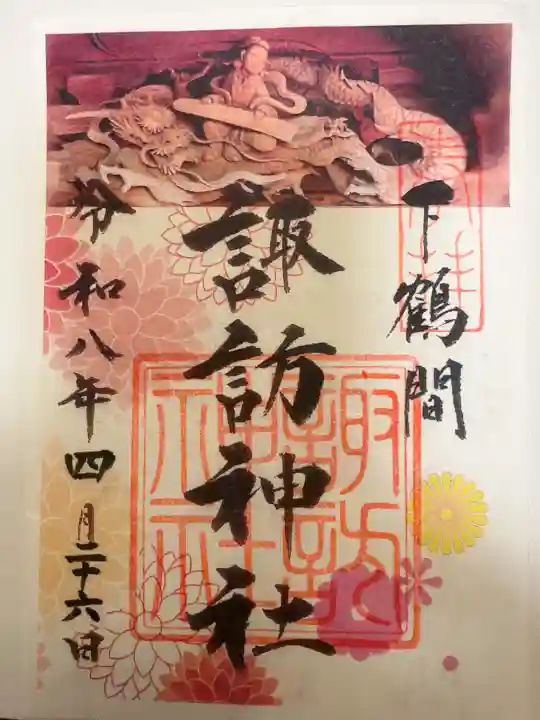 下鶴間
諏訪神社
令和八年四月二十六日
諏訪神社